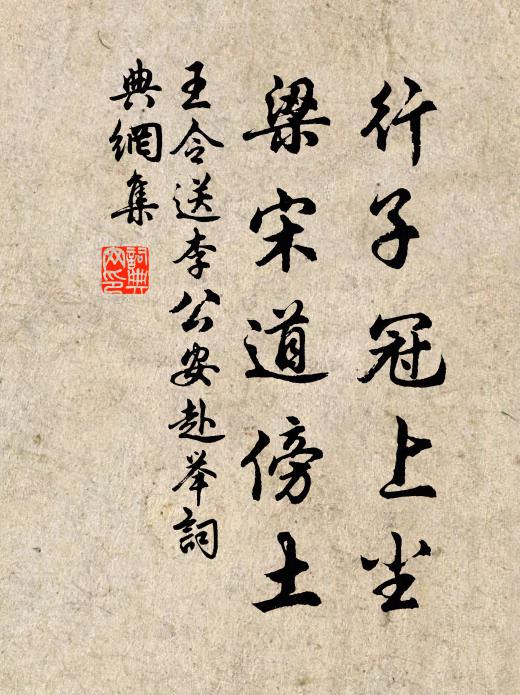 行子冠上尘
梁宋道傍土
王令送李公安赴举詞
典網集
詞典
网印